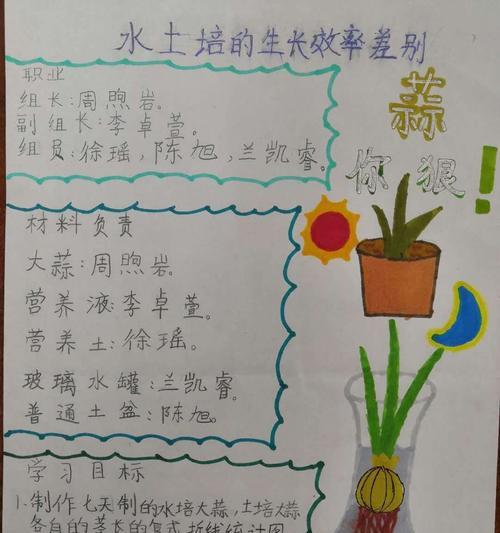 水土培的生长效率差别
职业
组长:周煦岩。
副组长:李卓萱。
组员:徐瑶,陈旭,兰凯睿。
蒜
你狠!
材料负责
大蒜:周煦岩。
营养液:李卓萱。
营养土:徐瑶。
玻璃水罐:兰凯睿。
普通土盆:陈旭。
学习目标
1.制作七天制的水培大蒜,土培大蒜
各自的茎长的复式折线统计图